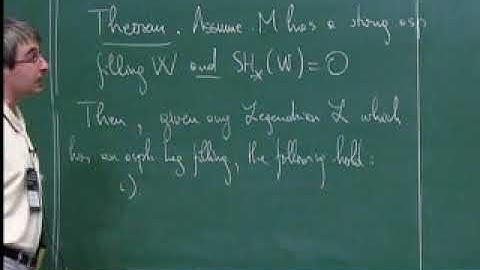 Theorem. Assume M has a strong asp
filling W and SH_*(W) = 0
Then, given any Legendrian L which
has an asph Leg filling, the following hold:
i)